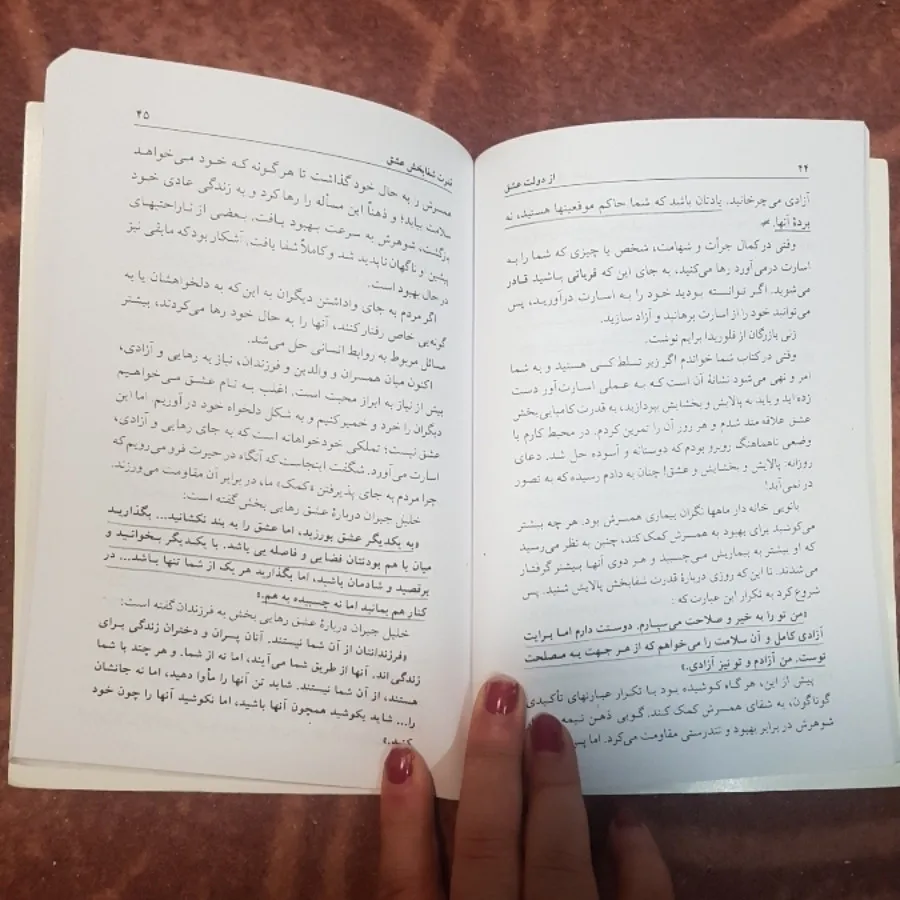 ۴۴
از دولت عشق
آزادی می‌چرخانید. یادتان باشد که شما حاکم موقعیتها هستید، نه
بردهٔ آنها.
وقتی در کمال جرأت و شهامت، شخص یا چیزی که شما را به
اسارت درمی‌آورد رها می‌کنید، به جای این که قربانی باشید قادر
می‌شوید. اگر توانسته بودید خود را به اسارت درآورید، پس
می‌توانید خود را از اسارت برهانید و آزاد سازید.
زنی بازرگان از فلوریدا برایم نوشت.
وقتی در کتاب شما خواندم اگر زیر تسلط کسی هستید و به شما
امر و نهی می‌شود نشانهٔ آن است که به عملی اسارت‌آور دست
زده‌اید و باید به پالایش و بخشایش بپردازید، به قدرت کامیابی‌بخش
عشق علاقه‌مند شدم و هر روز آن را تمرین کردم. در محیط کارم با
وضعی ناهماهنگ روبرو بودم که دوستانه و آسوده حل شد. دعای
روزانه: پالایش و بخشایش و عشق! چنان به دادم رسیده که به تصور
در نمی‌آید!
بانویی خانه‌دار ماهها نگران بیماری همسرش بود. هر چه بیشتر
می‌کوشید برای بهبود به همسرش کمک کند، چنین به نظر می‌رسید
که او بیشتر به بیماریش می‌چسبد و هر دوی آنها بیشتر گرفتار
می‌شدند. تا این که روزی دربارهٔ قدرت شفابخش پالایش شنید. پس
شروع کرد به تکرار این عبارت که:
«من تو را به خیر و صلاحت می‌سپارم. دوستت دارم اما برایت
آزادی کامل و آن سلامت را می‌خواهم که از هر جهت به مصلحت
توست. من آزادم و تو نیز آزادی.»
پیش از این، هرگاه کوشیده بود با تکرار عبارتهای تأکیدی
گوناگون، به شفای همسرش کمک کند. گویی ذهن نیمه
شوهرش در برابر بهبود و تندرستی مقاومت می‌کرد. اما پس
۴۵
قدرت شفابخش عشق
همسرش را به حال خود گذاشت تا هر گونه که خود می‌خواهد
سلامت بیابد؛ و ذهناً این مسأله را رها کرد و به زندگی عادی خود
بازگشت، شوهرش به سرعت بهبود یافت. بعضی از ناراحتیهای
پیشین و ناگهان ناپدید شد و کاملاً شفا یافت. آشکار بود که مابقی نیز
در حال بهبود است.
اگر مردم به جای واداشتن دیگران به این که به دلخواهشان یا به
گونه‌یی خاص رفتار کنند، آنها را به حال خود رها می‌کردند، بیشتر
مسائل مربوط به روابط انسانی حل می‌شد.
اکنون میان همسران و والدین و فرزندان، نیاز به رهایی و آزادی،
بیش از نیاز به ابراز محبت است. اغلب به نام عشق می‌خواهیم
دیگران را خرد و خمیر کنیم و به شکل دلخواه خود در آوریم. اما این
عشق نیست؛ تملکی خودخواهانه است که به جای رهایی و آزادی،
اسارت می‌آورد. شگفت اینجاست که آنگاه در حیرت فرو می‌رویم که
چرا مردم به جای پذیرفتن «کمک» ما، در برابر آن مقاومت می‌ورزند.
خلیل جبران دربارهٔ عشق رهایی بخش گفته است:
«به یکدیگر عشق بورزید، اما عشق را به بند نکشانید... بگذارید
میان با هم بودنتان فضایی و فاصله یی باشد. با یکدیگر بخوانید و
برقصید و شادمان باشید، اما بگذارید هر یک از شما تنها باشد... در
کنار هم بمانید اما نه چسبیده به هم.»
خلیل جبران دربارهٔ عشق رهایی بخش به فرزندان گفته است:
«فرزندانتان از آن شما نیستند. آنان پسران و دختران زندگی برای
زندگی اند. آنها از طریق شما می‌آیند، اما نه از شما. و هر چند با شما
هستند، از آن شما نیستند. شاید تن آنها را مأوا دهید، اما نه جانشان
را... شاید بکوشید همچون آنها باشید، اما نکوشید آنها را چون خود
کنید.»